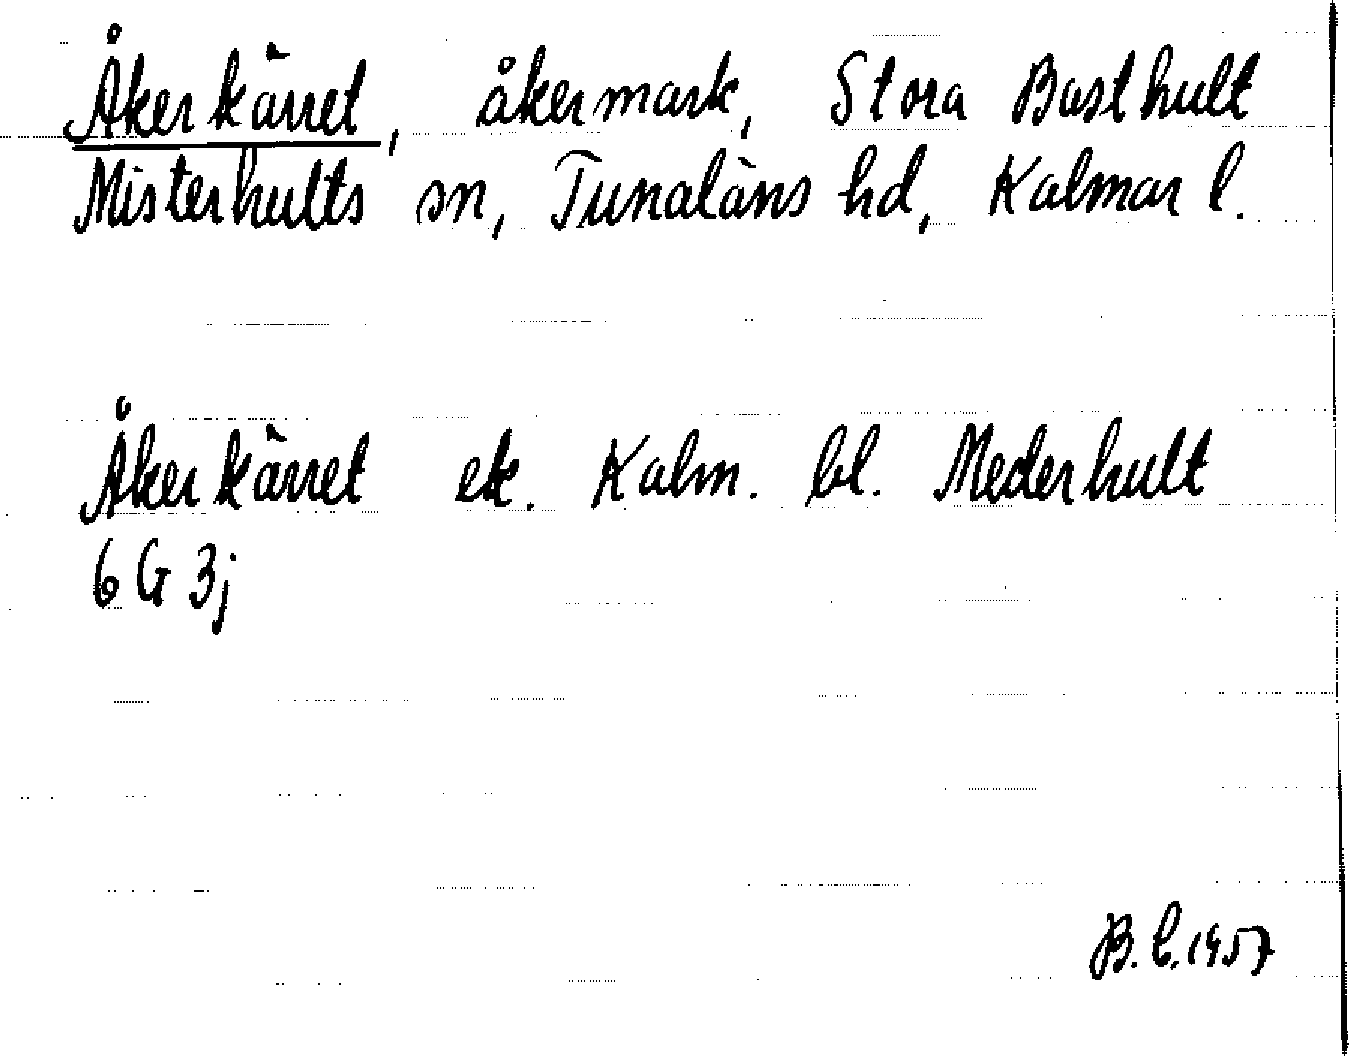 Åkerkärret, åkermark, Stora Basthult
Misterhults sn, Tunaläns hd, Kalmar l.
Åkerkärret ek. Kalm. bl. Mederhult
6 G 3j
B.C.1957